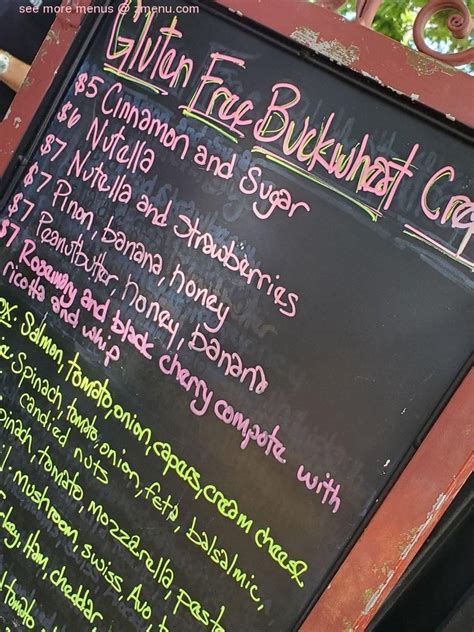 see more menus @ zmenu.com
Gluten Free Buckwheat
$5 Cinnamon and Sugar
$6 Nutella
$7 Nutella and Strawberries
$7 Pinon, banana, honey
$7 Peanutbutter, honey, banana
$7 Rosemary and black cherry compote with
ricotta and whip
Salmon, tomato, onion, capers, cream cheese
Spinach, tomato, onion, feta, balsalmic,
candied nuts
tomato, mozzarella,
mushroom, swiss, Avo,
Ham, cheddar
tomato